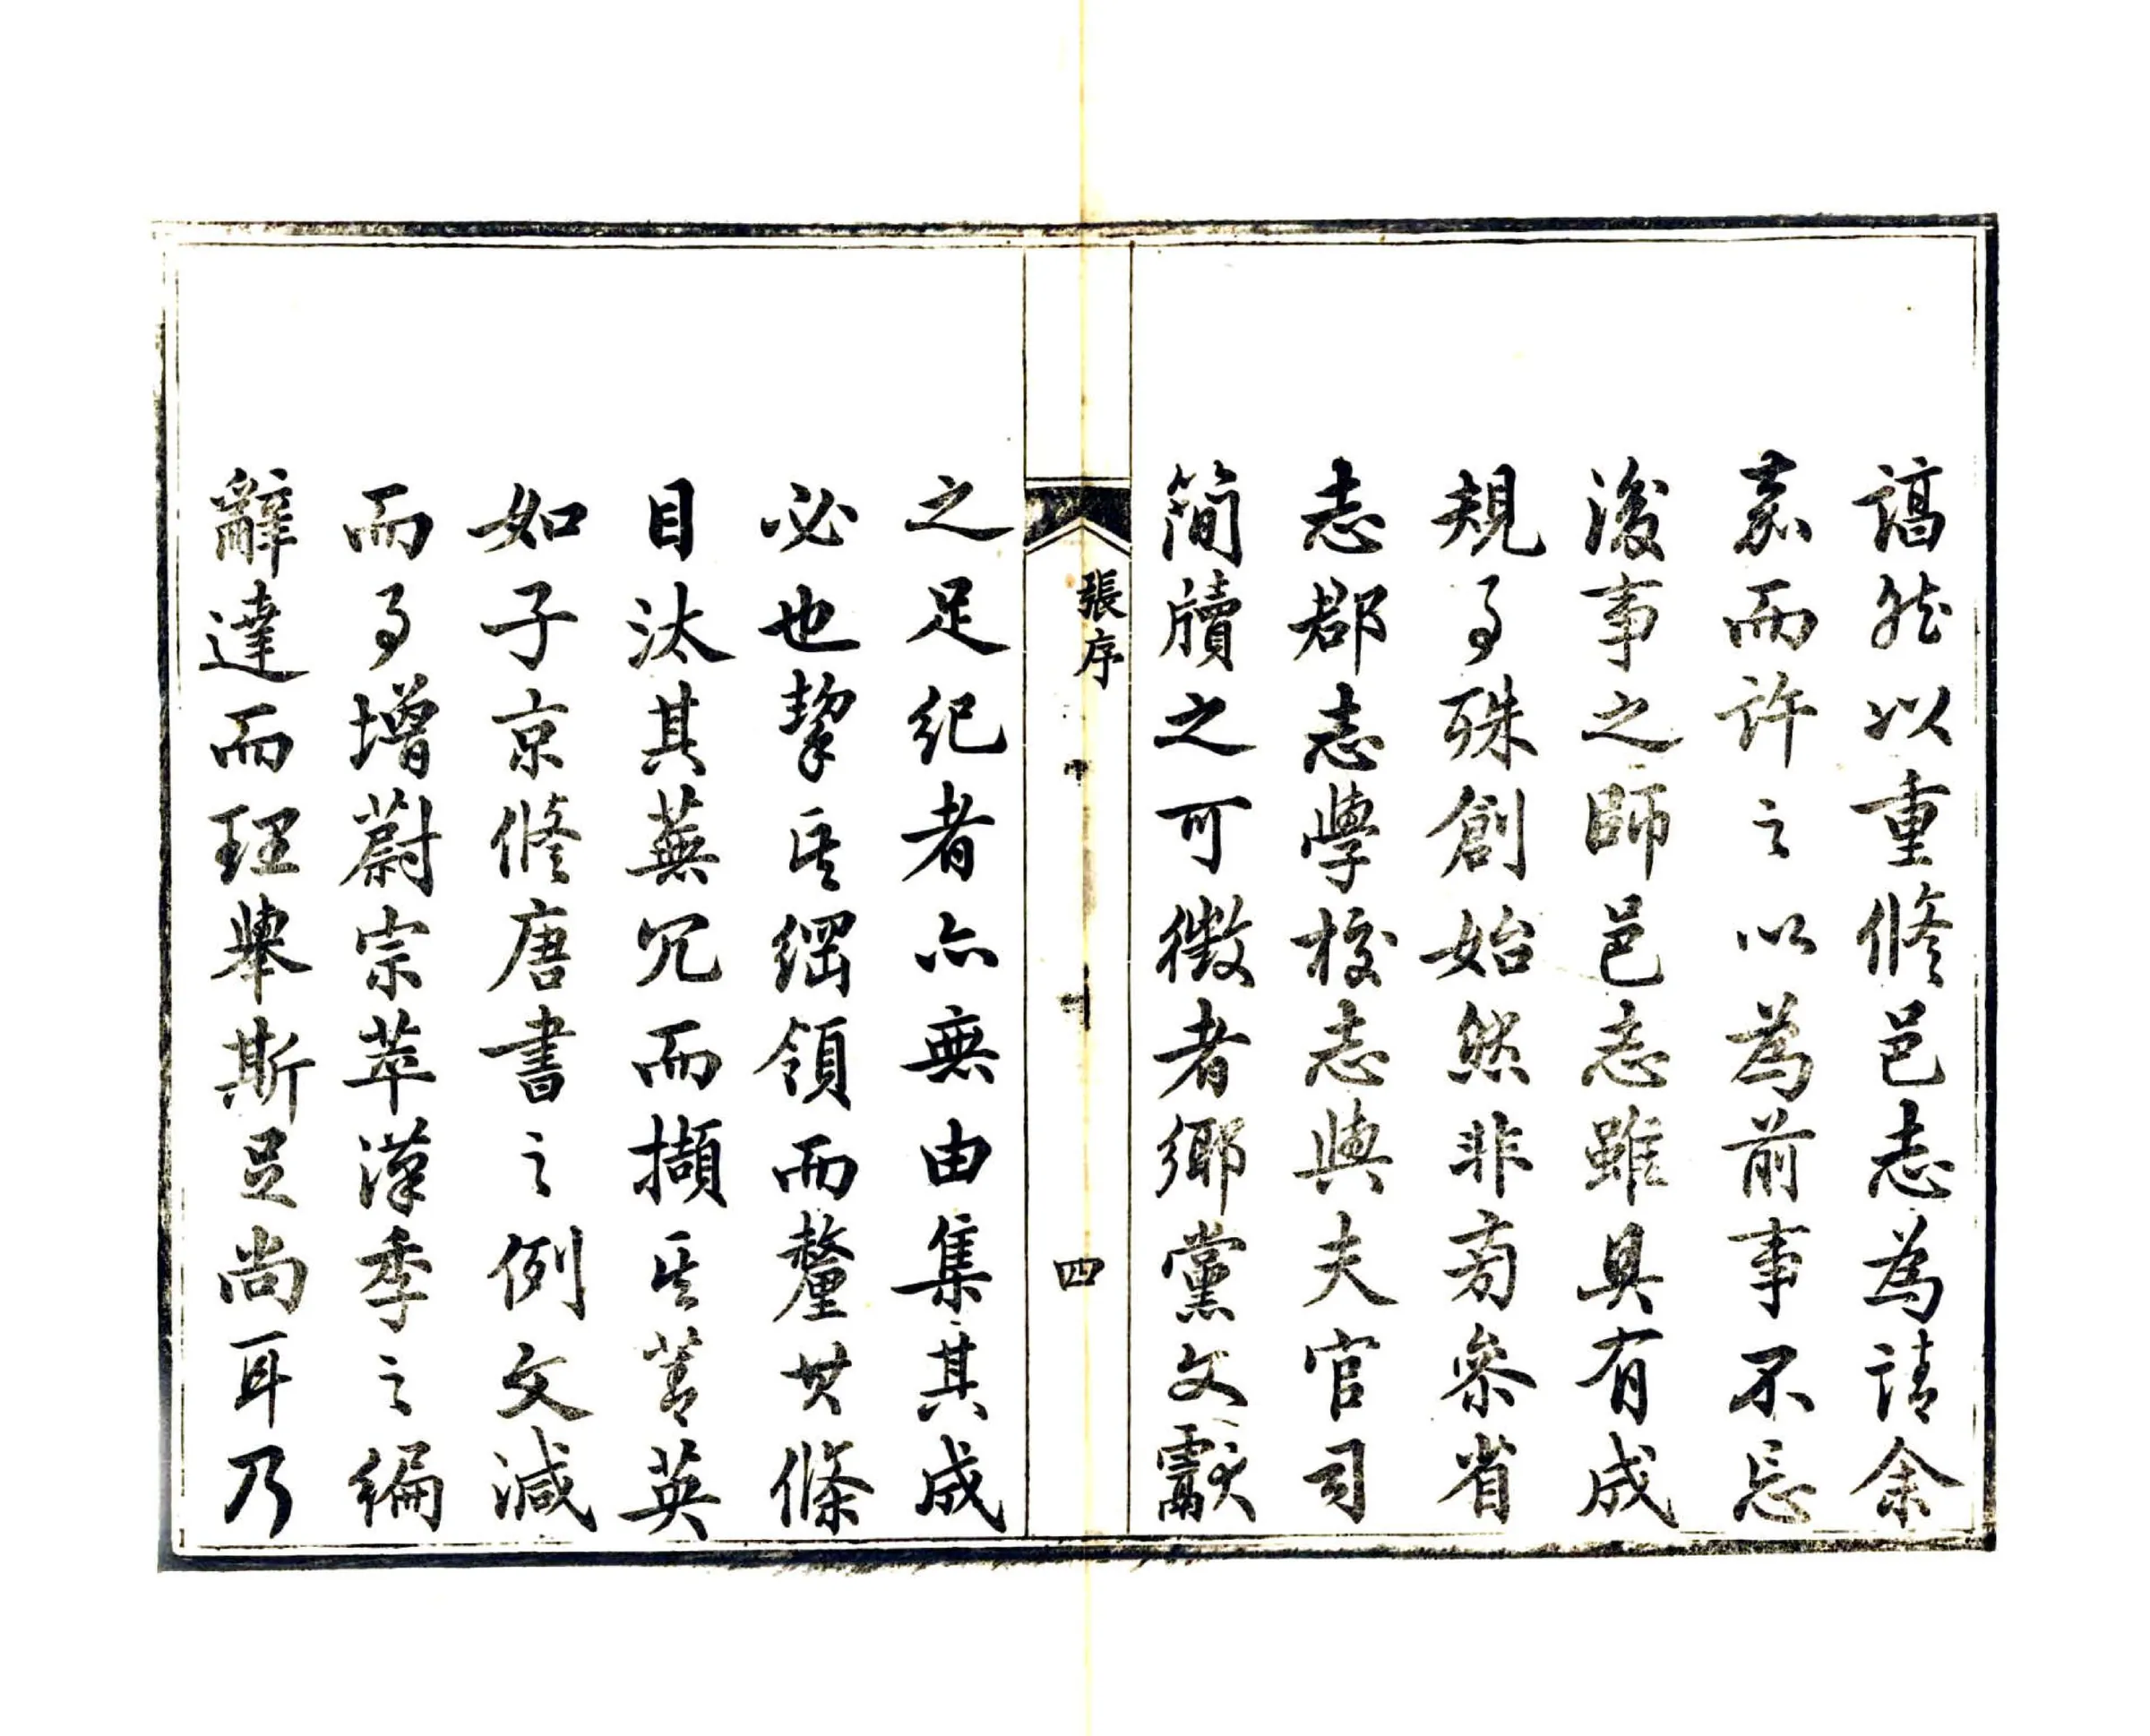 謞然以重修邑志為請余
嘉而許之以為前事不忘
後事之師邑志雖具有成
規事殊創始然非旁參省
志郡志學校志與夫官司
簡牘之可徵者鄉黨文獻
張序
四
之足紀者亦無由集其成
必也挈其綱領而釐其條
目汰其蕪冗而擷其菁英
如子京修唐書之例文減
而事增蔚宗萃漢季之編
辭達而理舉斯足尚耳乃